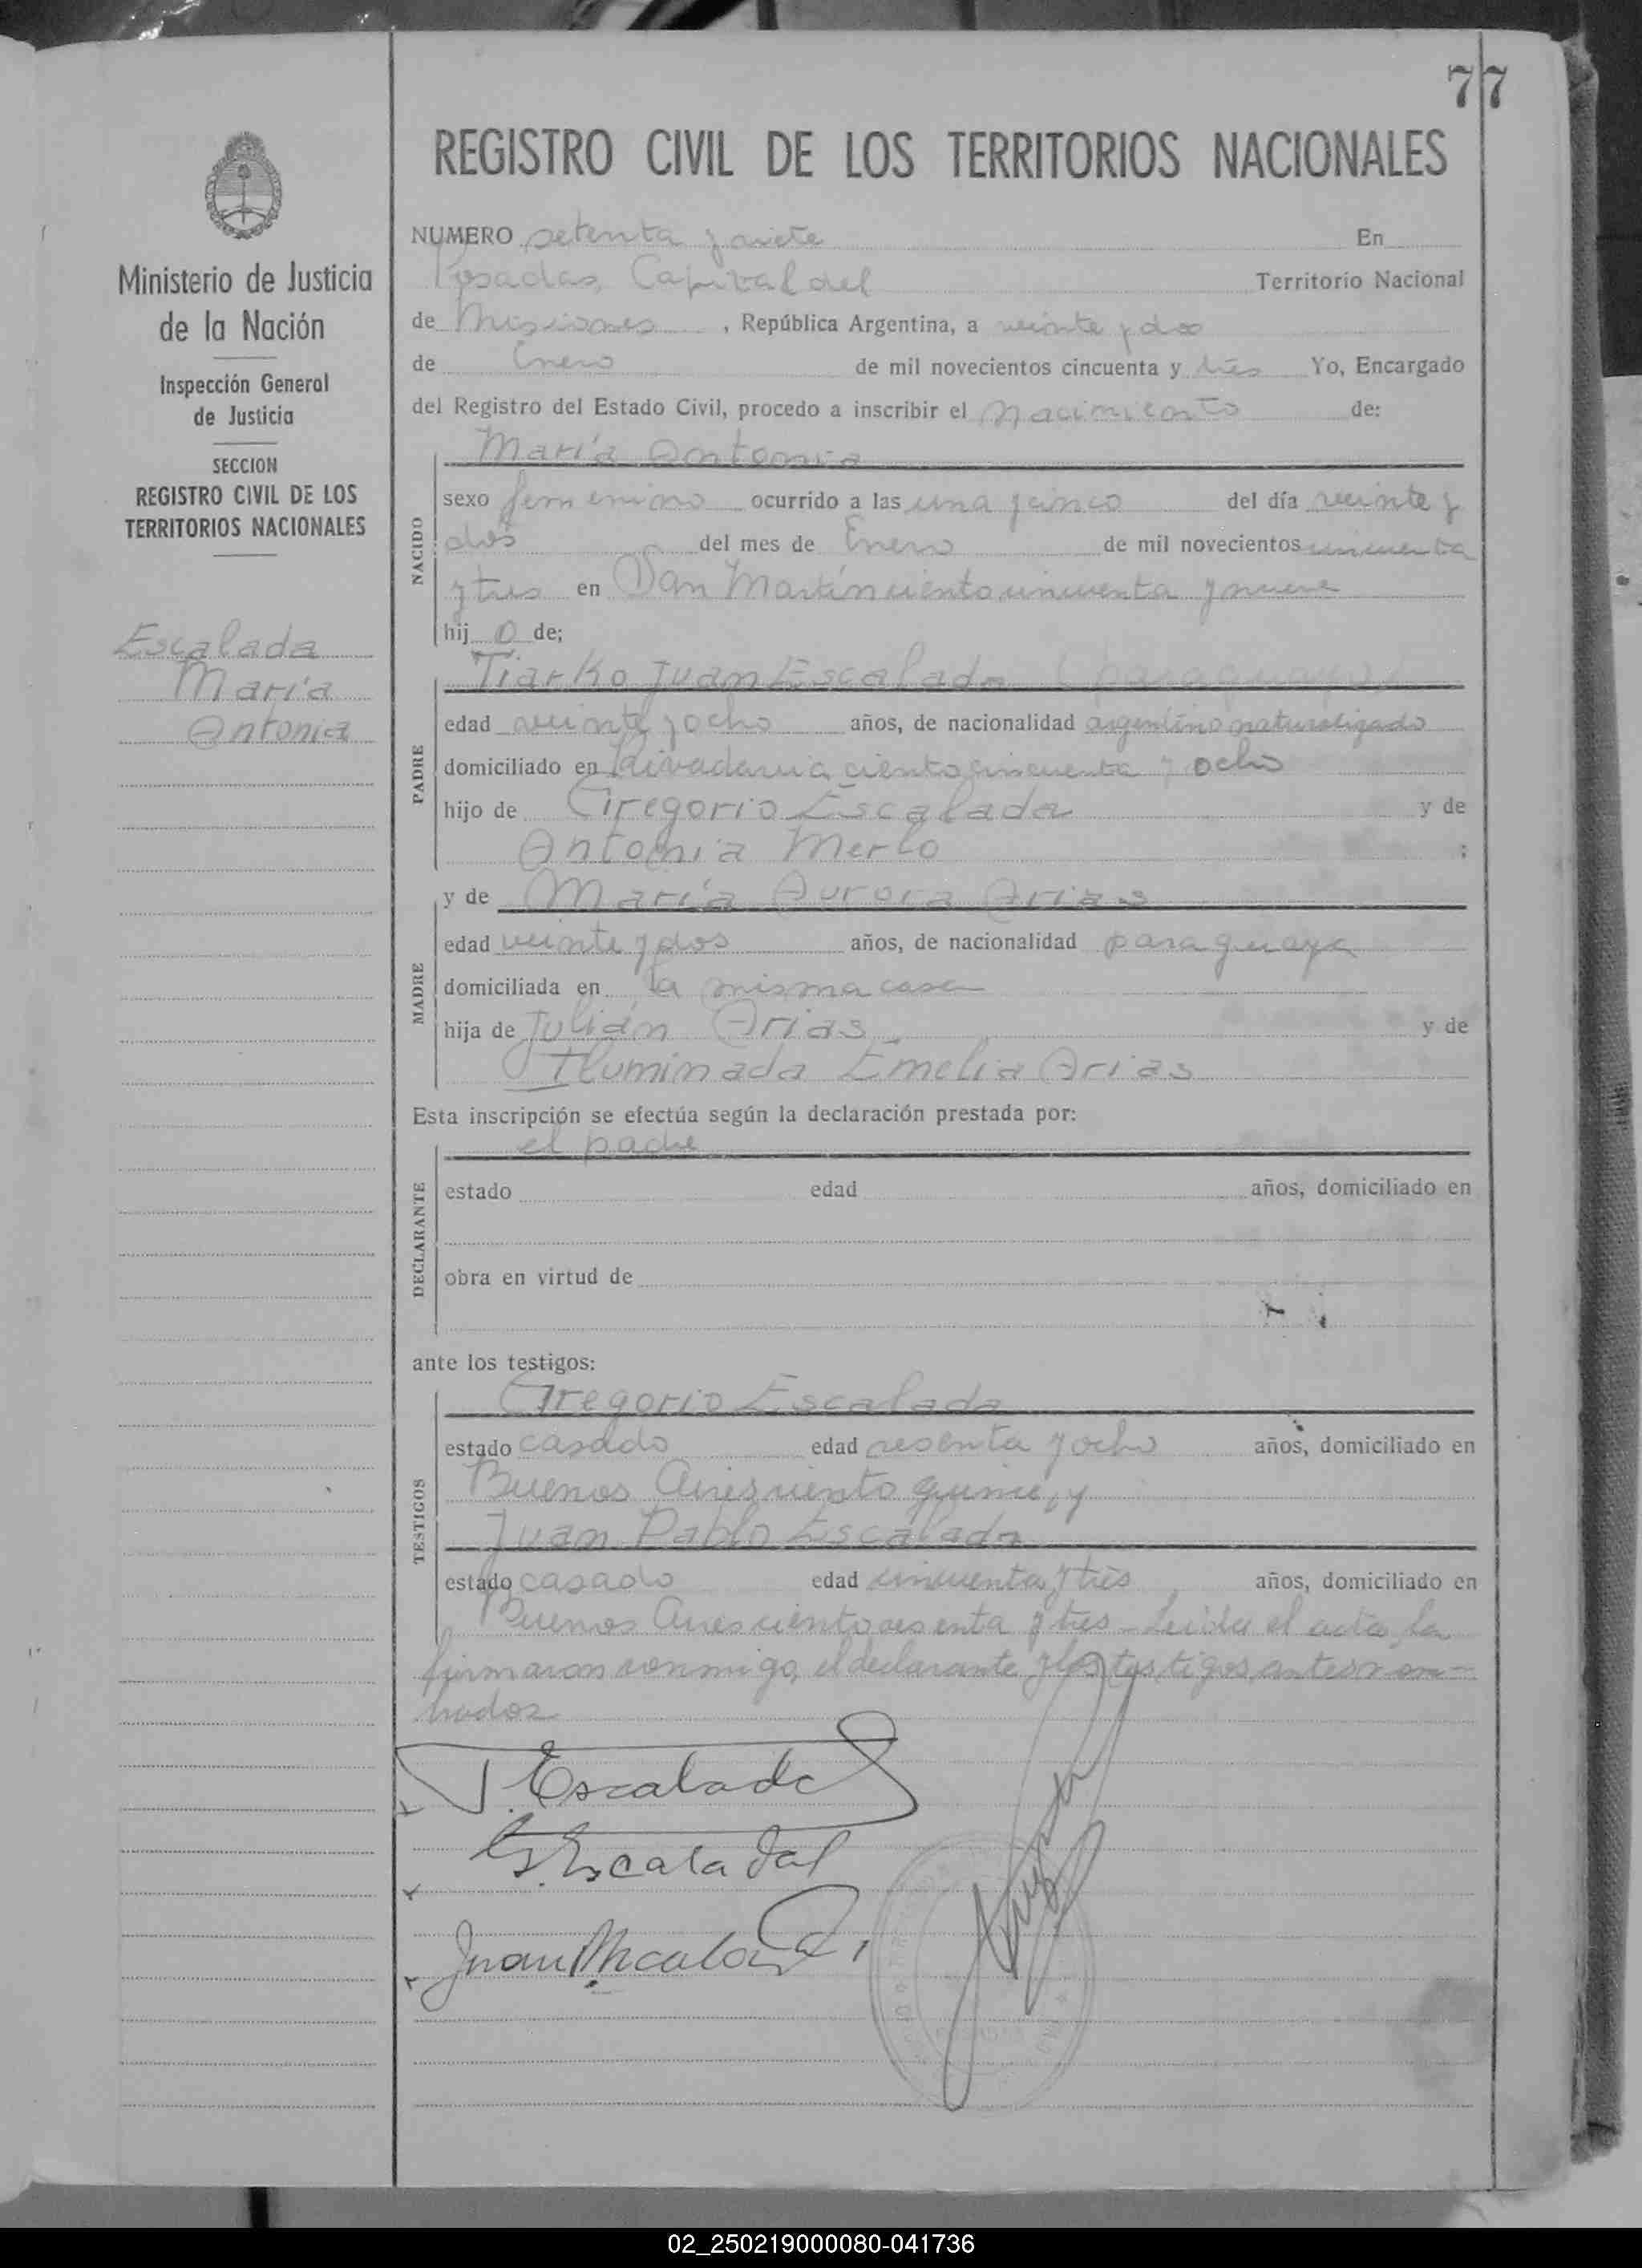 77
REGISTRO CIVIL DE LOS TERRITORIOS NACIONALES
Ministerio de Justicia
de la Nación
Inspección General
de Justicia
SECCION
REGISTRO CIVIL DE LOS
TERRITORIOS NACIONALES
Escalada
María
Antonia
NUMERO setenta y siete En
Posadas, Capital del Territorio Nacional
de Misiones, República Argentina, a veinte y dos
de Enero de mil novecientos cincuenta y tres Yo, Encargado
del Registro del Estado Civil, procedo a inscribir el Nacimiento de:
María Antonia
NACIDO
sexo femenino ocurrido a las una y cinco del día veinte y
dos del mes de Enero de mil novecientos cincuenta
y tres en San Martín ciento cincuenta y nueve
hij o de;
PADRE
Tiarko Juan Escalada (paraguayo)
edad veinte y ocho años, de nacionalidad argentino naturalizado
domiciliado en Rivadavia ciento cincuenta y ocho
hijo de Gregorio Escalada y de
Antonia Merlo ;
MADRE
y de María Aurora Arias
edad veinte y dos años, de nacionalidad paraguaya
domiciliada en la misma casa
hija de Julián Arias y de
Iluminada Emelia Arias
Esta inscripción se efectúa según la declaración prestada por:
el padre
DECLARANTE
estado edad años, domiciliado en
obra en virtud de
ante los testigos:
TESTIGOS
Gregorio Escalada
estado casado edad sesenta y ocho años, domiciliado en
Buenos Aires ciento quince, y
Juan Pablo Escalada
estado casado edad cincuenta y tres años, domiciliado en
Buenos Aires ciento sesenta y tres - Leída el acta, la
firmaron conmigo, el declarante y los testigos antes nom-
brados
T. Escalada
G. Escalada
Juan P. Escalada
02_250219000080-041736